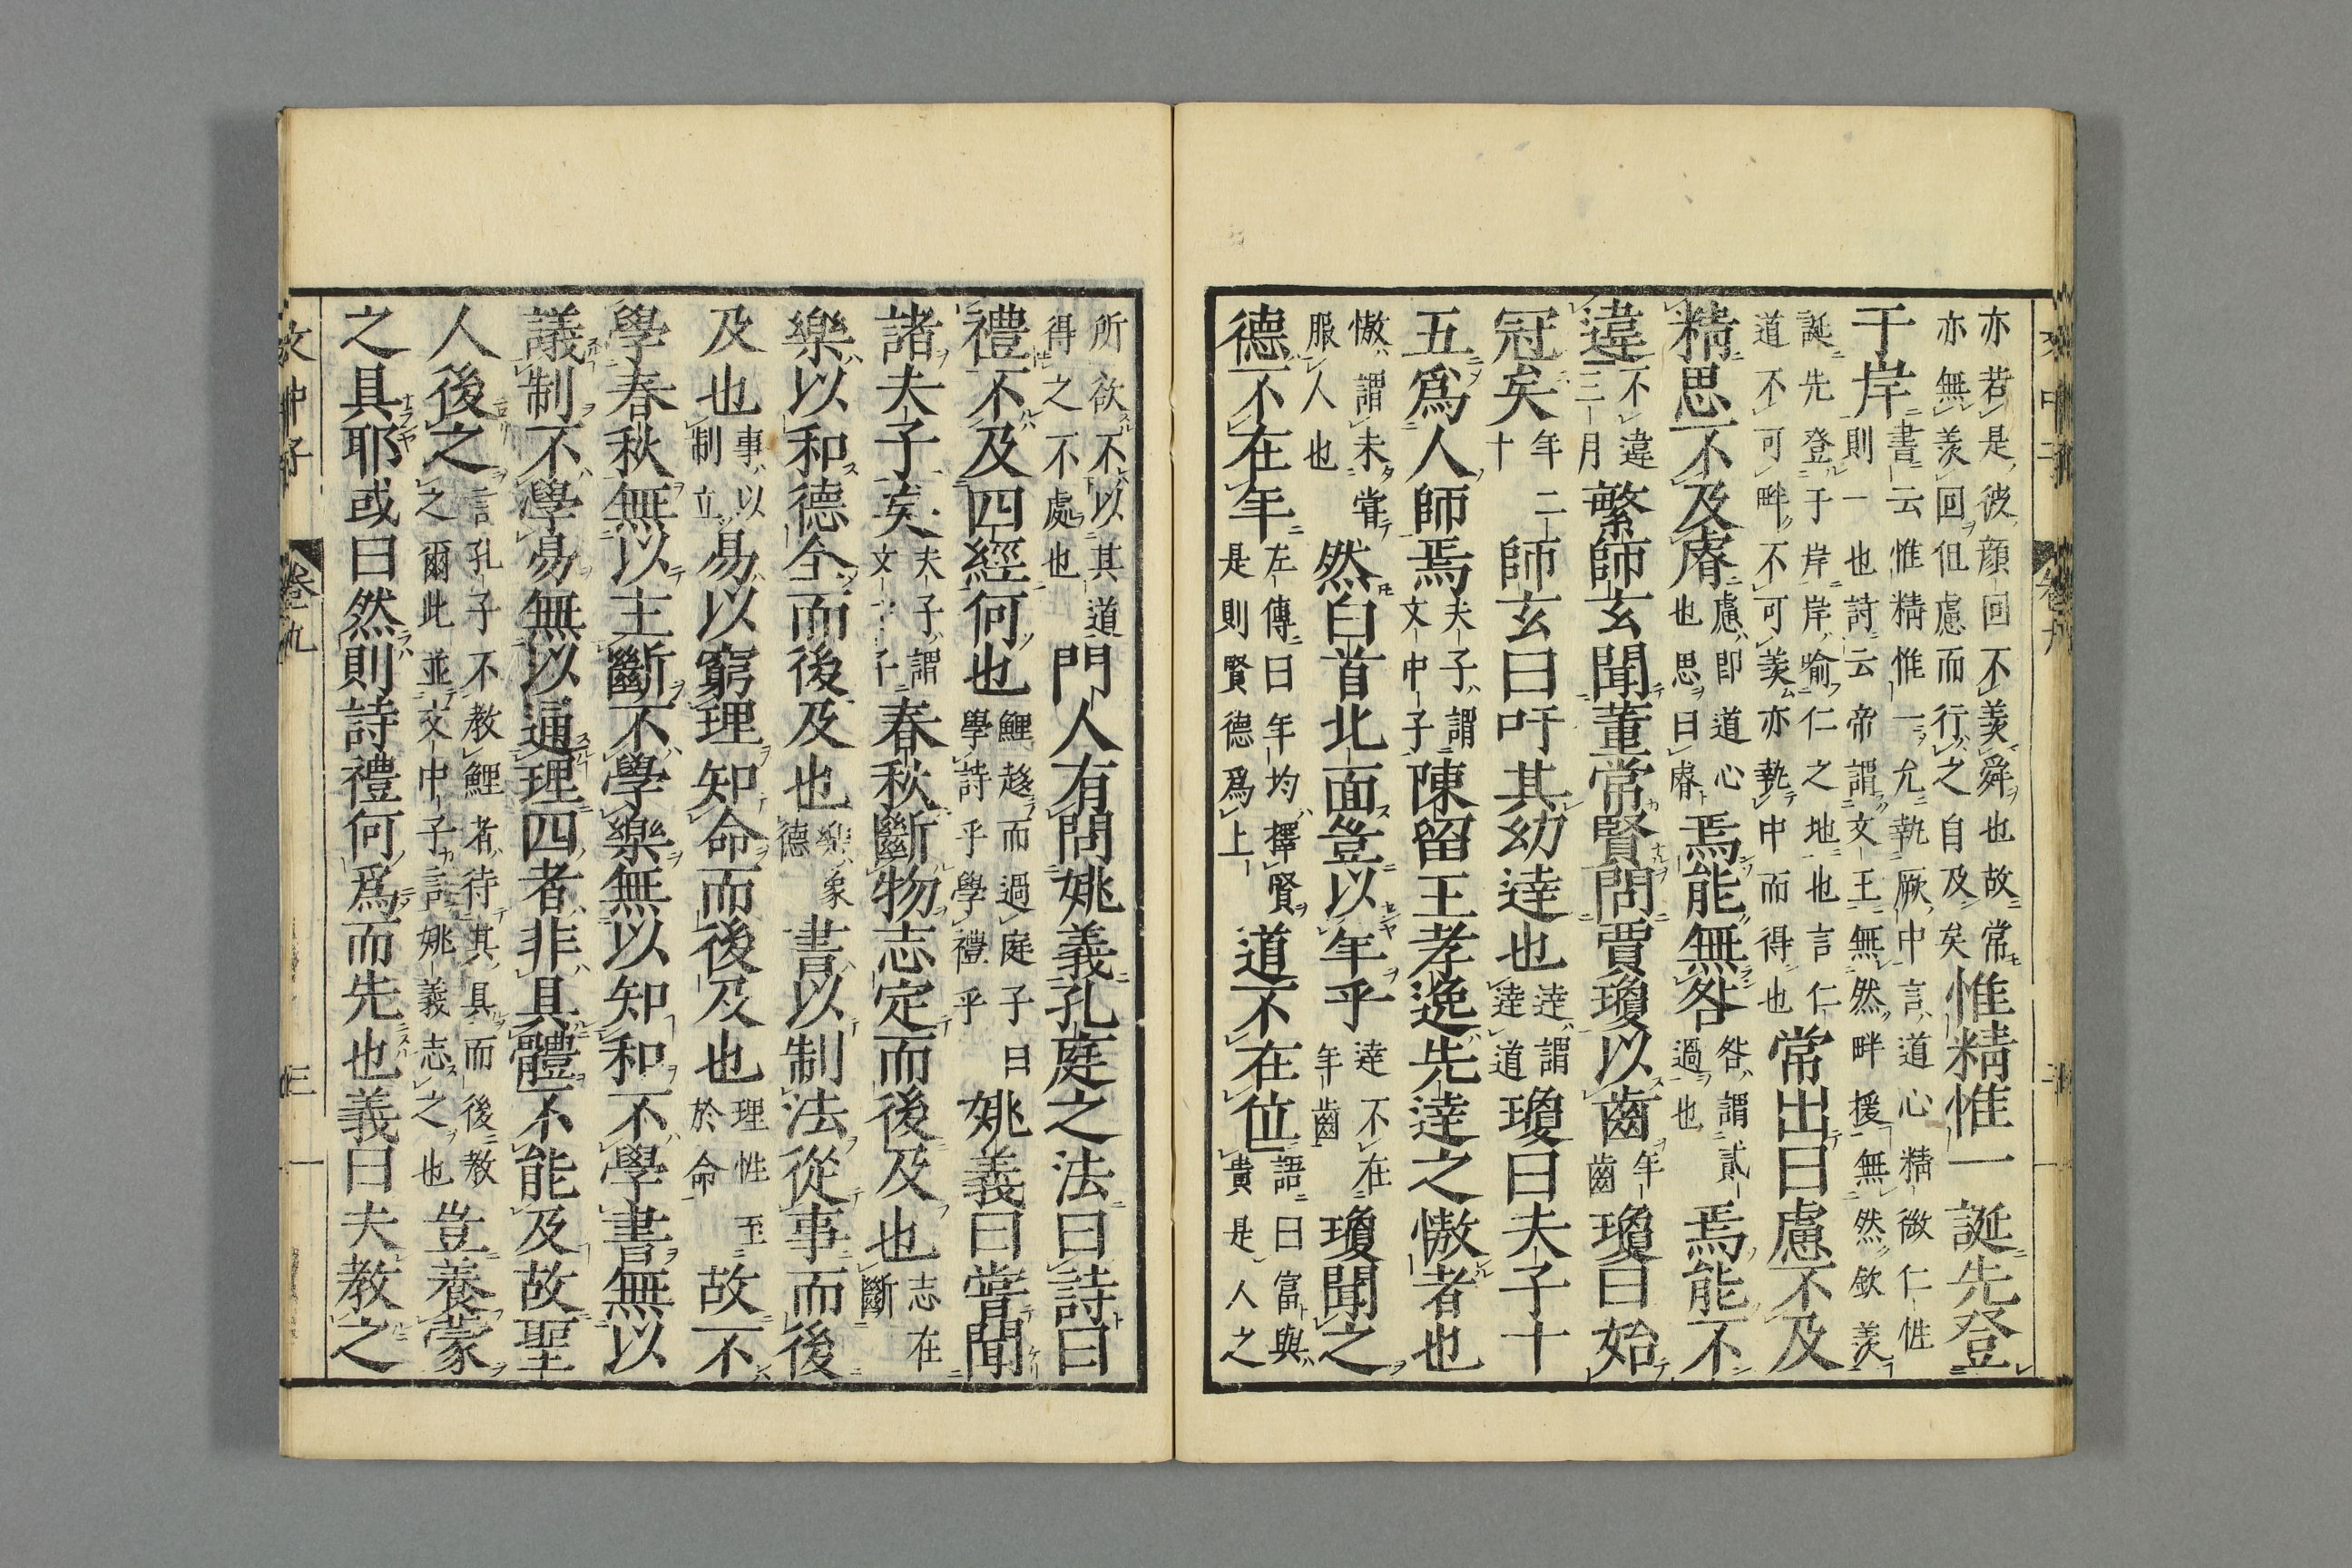 亦若是彼顔回不羨舜也故常
亦無羨回但慮而行之自及矣
惟精惟一誕先登
于岸
書云惟精惟一允執厥中言道心精微仁性
則一也詩云帝謂文王無然畔援無然歆羨
誕先登于岸岸喻仁之地也言仁
道不可畔不可羨亦執中而得也
常出曰慮不及
精思不及睿
慮即道心
也思曰睿
焉能無咎
咎謂貳
過也
焉能不
違
不違
三月
繁師玄聞董常賢問賈瓊以齒
年
齒
瓊曰始
冠矣
年二
十
師玄曰吁其幼達也
達謂
達道
瓊曰夫子十
五爲人師焉
夫子謂
文中子
陳留王孝逸先達之慠者也
慠謂未甞
服人也
然白首北面豈以年乎
達不在
年齒
瓊聞之
德不在年
左傳曰年均擇賢
是則賢德爲上
道不在位
語曰富與
貴是人之
所欲不以其道
得之不處也
門人有問姚義孔庭之法曰詩曰
禮不及四經何也
鯉趍而過庭子曰
學詩乎學禮乎
姚義曰甞聞
諸夫子矣
夫子謂
文中子
春秋斷物志定而後及也
志在
斷
樂以和德全而後及也
樂象
德
書以制法從事而後
及也
事以
制立
易以窮理知命而後及也
理性至
於命
故不
學春秋無以主斷不學樂無以知和不學書無以
議制不學易無以通理四者非具體不能及故聖
人後之
言孔子不教鯉者待其具而後教
之爾此並文中子言姚義志之也
豈養蒙
之具耶或曰然則詩禮何爲而先也義曰夫教之
文中子
卷九
三